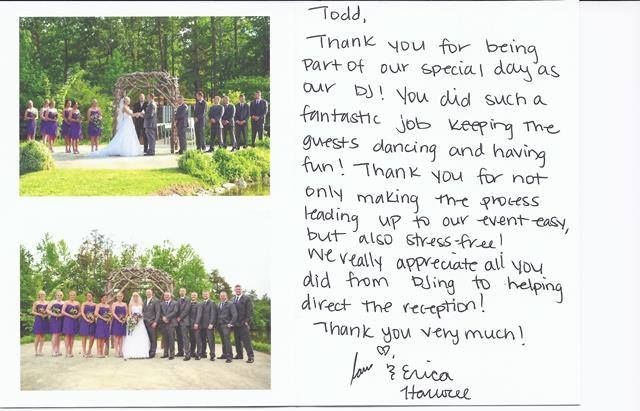 Todd,
Thank you for being
part of our special day as
our DJ! You did such a
fantastic job keeping the
guests dancing and having
fun! Thank you for not
only making the process
leading up to our event easy,
but also stress-free!
We really appreciate all you
did from DJing to helping
direct the reception!
Thank you very much!
& Erica